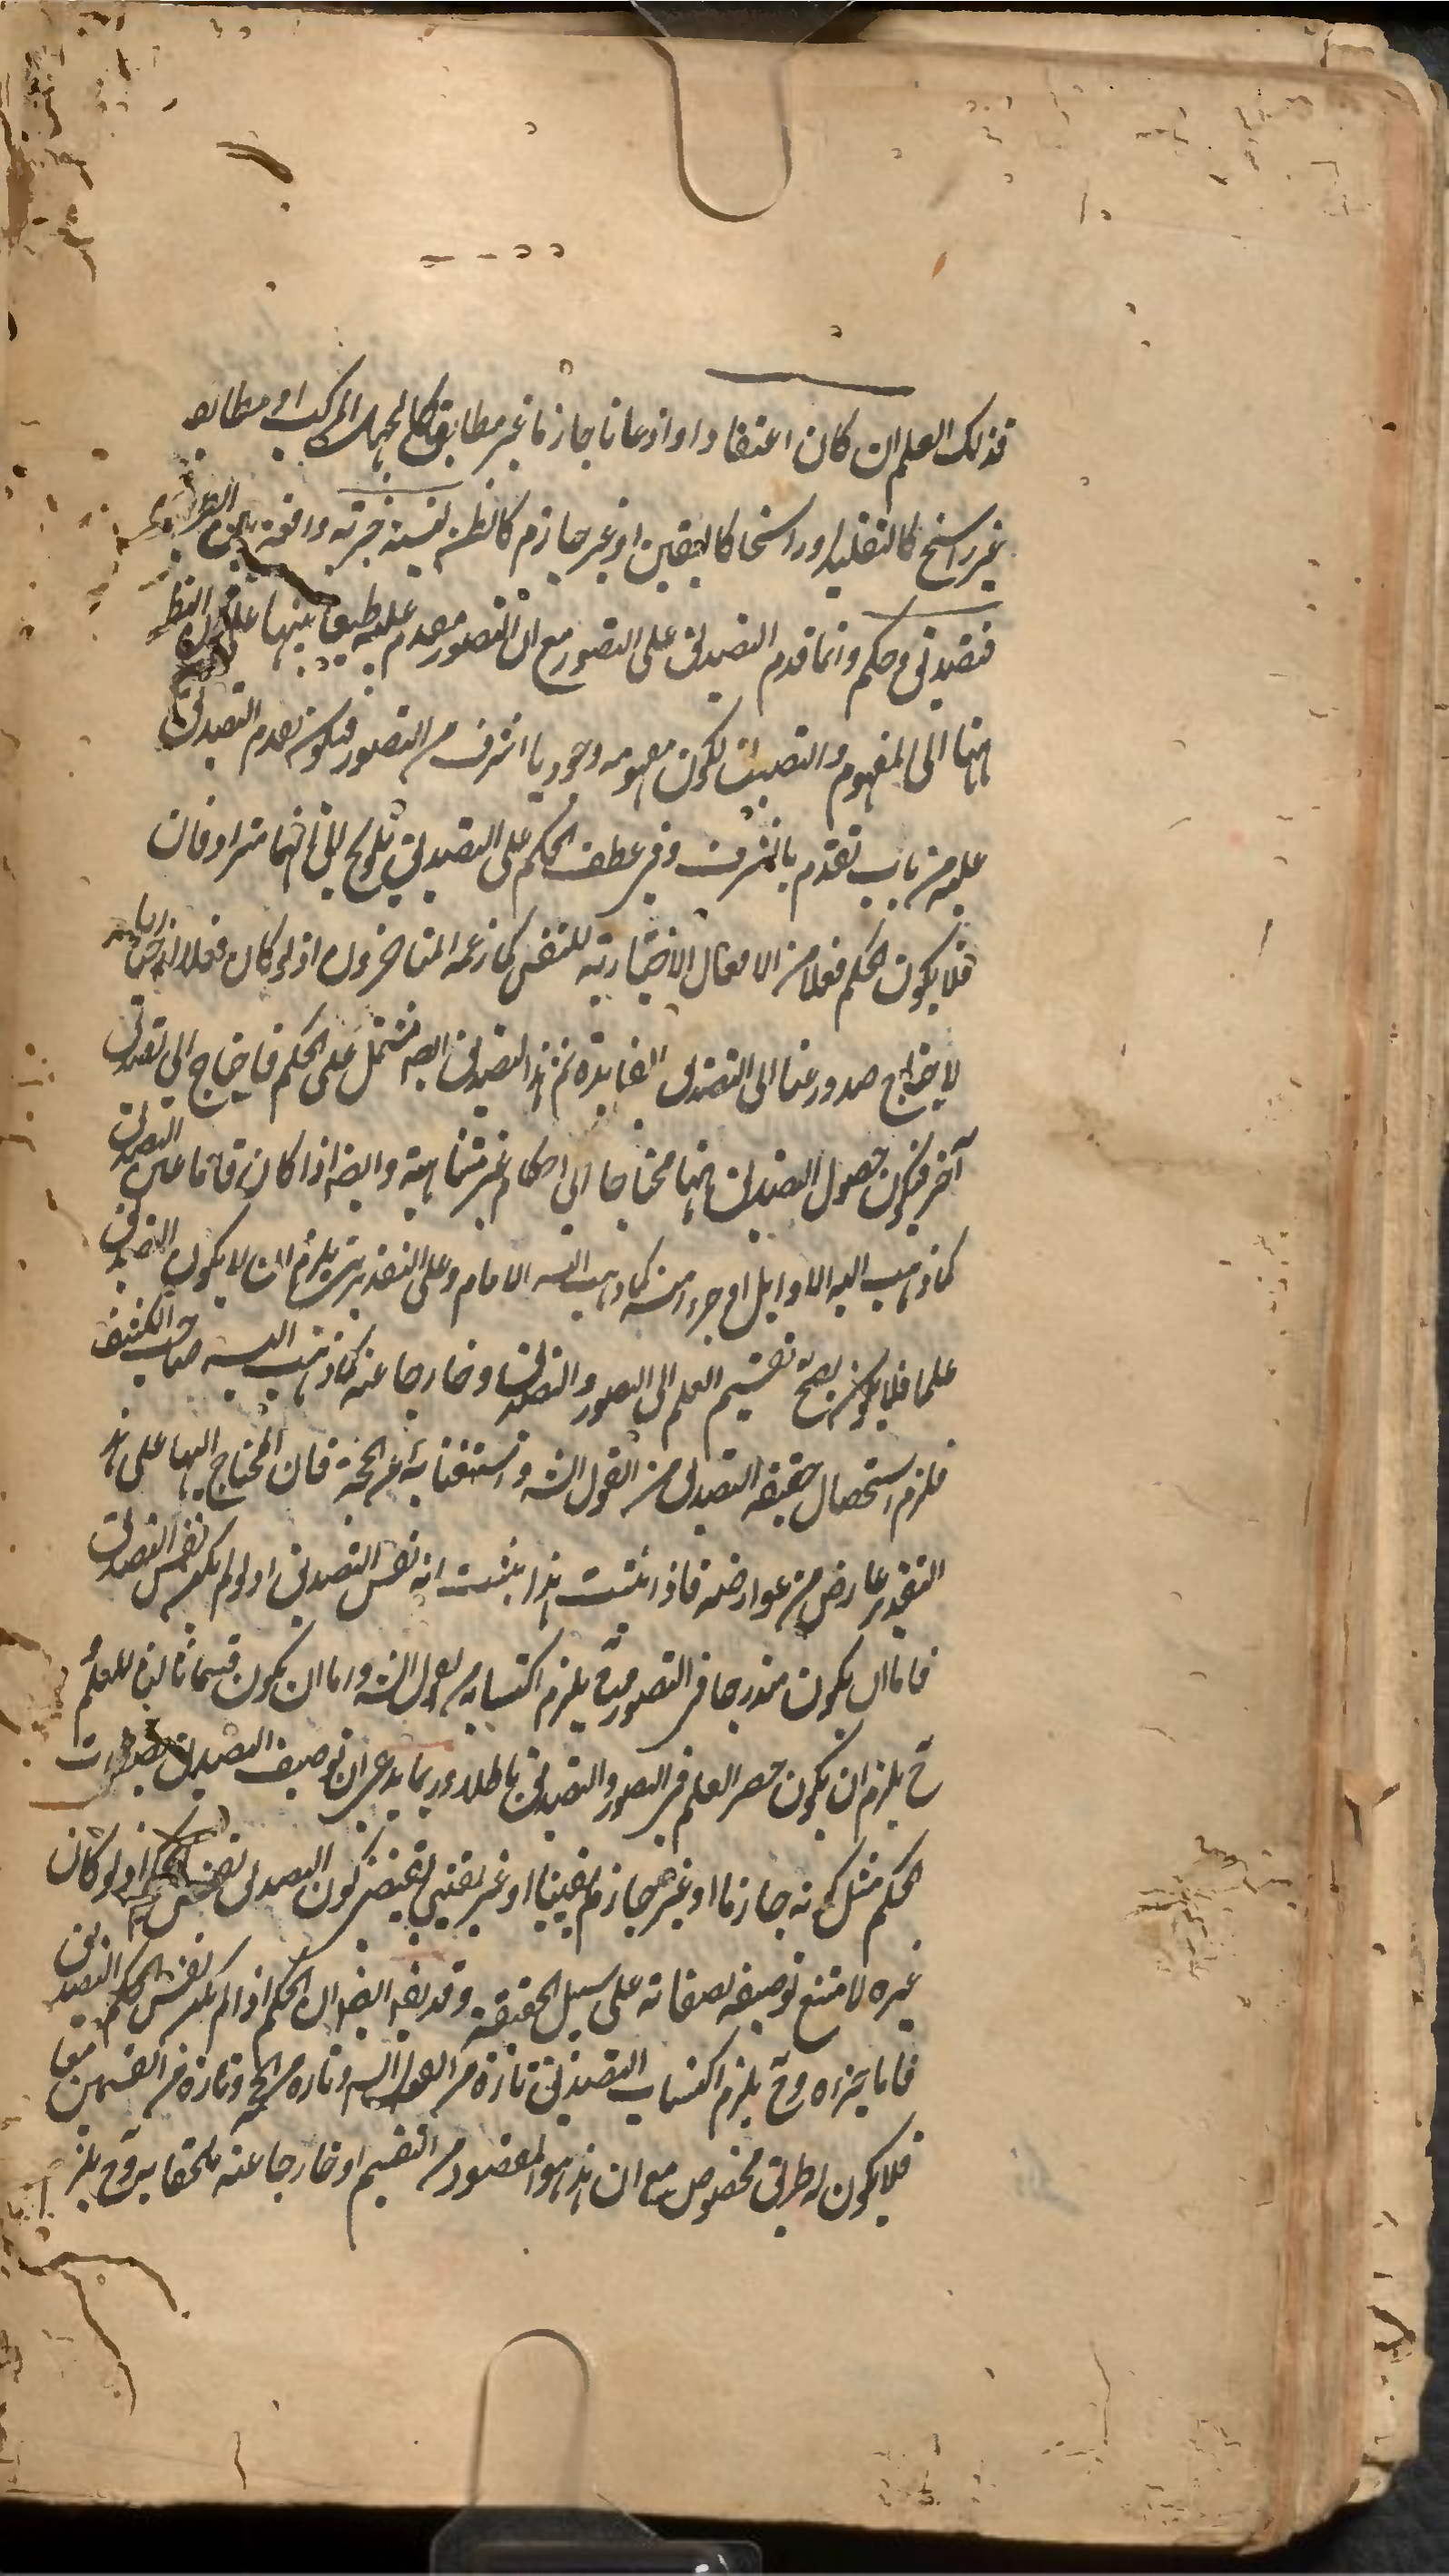 فذلك العلم ان كان اعتقادا و اذعانا جازما غير مطابق كالجهل المركب او مطابقا
غير راسخ كالتقليد او راسخا كاليقين او غير جازم كالظن لنسبة خبرية واقعة بين
فتصديق وحكم وانما قدم التصديق على التصور مع ان التصور مقدم عليه طبعا بينها على النظر
ههنا الى المفهوم والتصديق لكون مفهومه وجوديا اشرف من التصور فيكون تقدم التصديق
عليه من باب تقدم بالشرف وفي عطف الحكم على التصديق تلويح الى انهما مترادفان
فلا يكون الحكم فعلا من الافعال الاختيارية للنفس كما زعمه المتاخرون اذ لو كان فعلا
لاحتاج صدوره عنا الى التصديق الفائدة ثم هذا التصديق ايضا مشتمل على الحكم فاحتاج الى تصديق
آخر فيكون حصول التصديق ههنا محتاجا الى احكام غير متناهية وايضا اذا كان فاما عين التصديق
كما ذهب اليه الاوايل او جزء منه كما ذهب اليه الامام وعلى التقديرين يلزم ان لا يكون التصديق
علما فلا يصح تقسيم العلم الى التصور والتصديق او خارجا عنه كما ذهب اليه صاحب الكشف
فلزم استحصال حقيقة التصديق من القول الشه واستغنائه عن الحجة فان المحتاج اليها على هذا
التقدير عارض من عوارضه فاذا ثبت هذا ثبت انه نفس التصديق اذ لو لم يكن نفس التصديق
فاما ان يكون مندرجا في التصور فح يلزم اكتسابه من القول الشه واما ان يكون قسما ثالثا للعلم
ح يلزم ان يكون حصر العلم في التصور والتصديق باطلا وربما يدعى ان توصيف التصديق بصفات
الحكم مثل كونه جازما او غير جازم يقينيا او غير يقيني يقتضي كون التصديق نفس الحكم اذ لو كان
غيره لامتنع توصيفه بصفاته على سبيل الحقيقة وقد يق ايضا ان الحكم اذا لم يكن نفس التصديق
فاما جزءه وح يلزم اكتساب التصديق تارة من القول الشه وتارة من الحجة وتارة من القسمين معا
فلا يكون له طريق مخصوص مع ان هذا هو المقصود من التقسيم او خارجا عنه ملحقا به وح يلزم